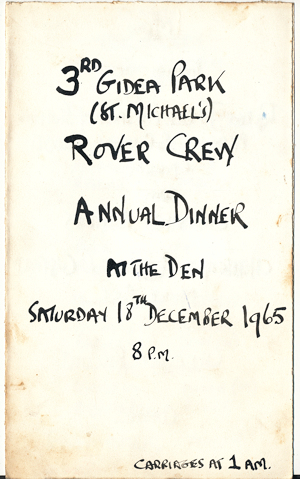 3RD GIDEA PARK
(ST. MICHAEL'S)
ROVER CREW
ANNUAL DINNER
AT THE DEN
SATURDAY 18TH DECEMBER 1965
8 P.M.
CARRIAGES AT 1 AM.